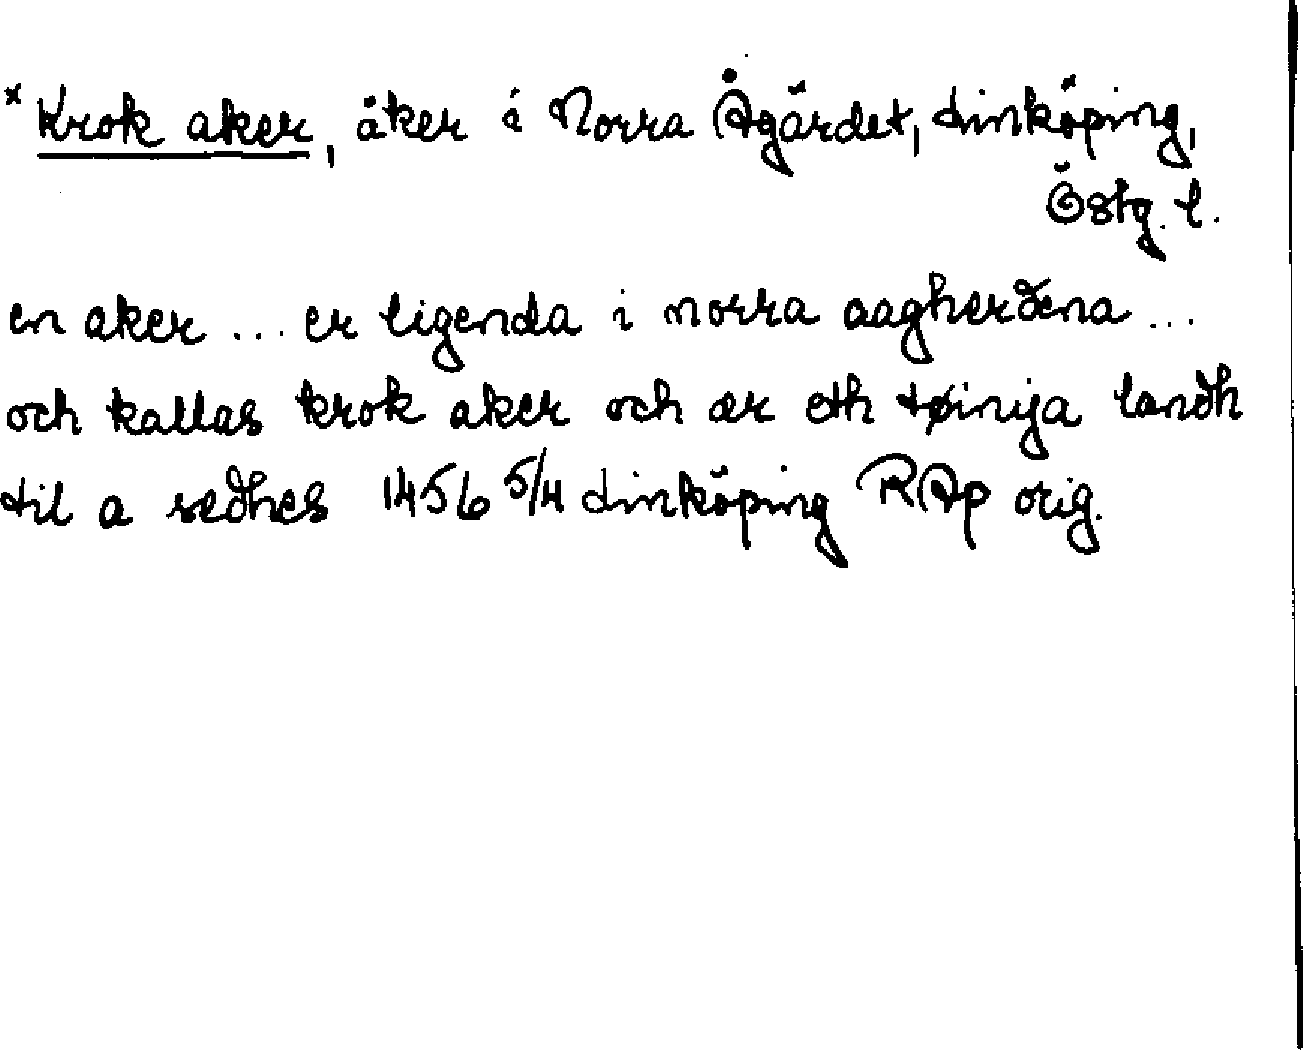 * Krok aker, åker i Norra Ågärdet, Linköping,
Östg. l.
en aker ... er ligenda i norra aagherðena ...
och kallas krok aker och ær eth tøinya landh
til a sæðhes 1456 5/4 Linköping RAp orig.